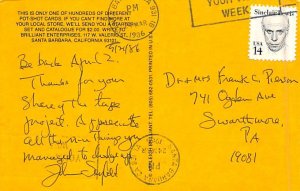 THIS IS ONLY ONE OF HUNDREDS OF DIFFERENT
POT-SHOT CARDS. IF YOU CAN FIND NO MORE AT
YOUR LOCAL STORE, WE'LL SEND YOU A STARTER
SET AND CATALOGUE FOR $2.00. WRITE TO:
BRILLIANT ENTERPRISES, 117 W. VALERIO ST.,
SANTA BARBARA, CALIFORNIA 93101
PM
1986
Be back April 2.
Thanks for your
Share of the taxes
project. Appreciate
all the things you
managed to
WEEK
Sinclair Lewis
USA
14
Dr + Mrs Frank C. Pierson
741 Ogden Ave
Swarthmore,
PA
19081
PM